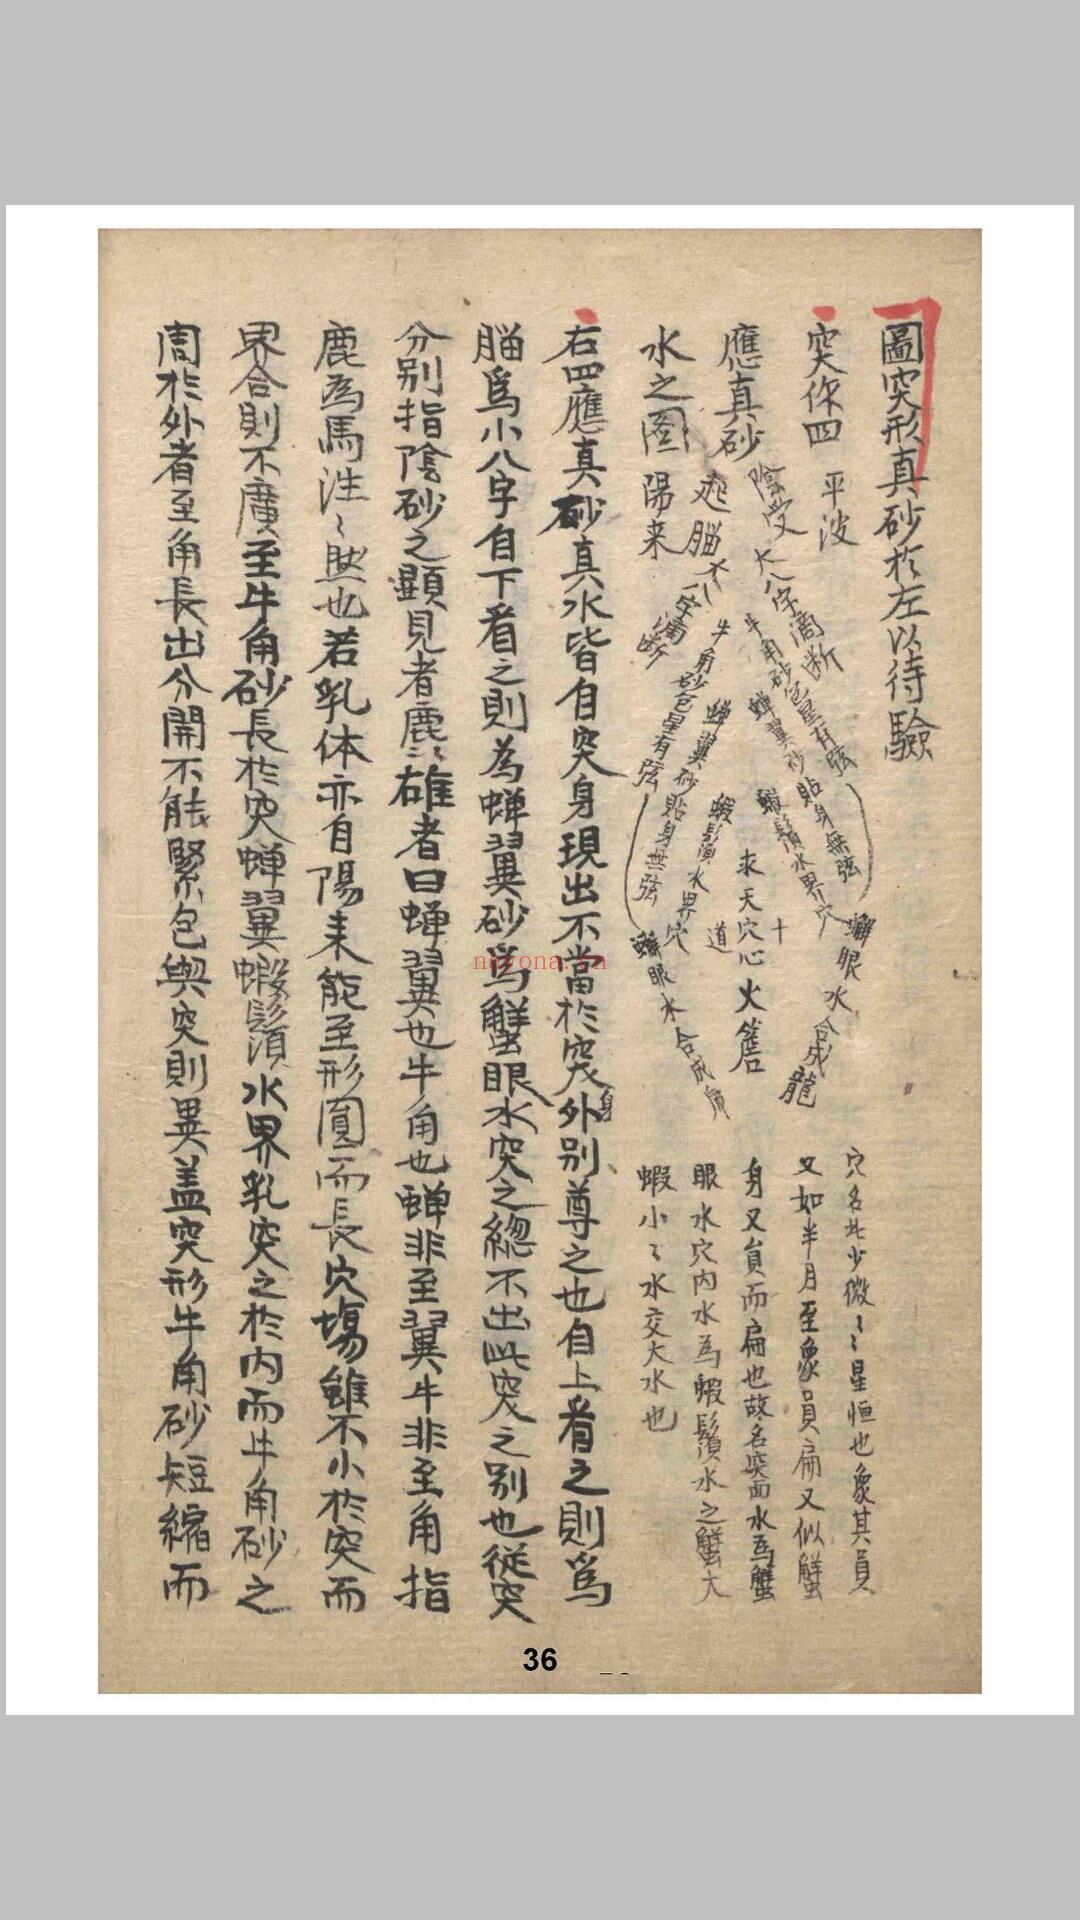 圖突形真砂於左以待驗
突作四
應真砂
水之圖
平波
陰受
起腦
陽来
大八字滴断
牛角砂包星有弦
蝉翼砂貼身無弦
蝦鬚水界穴
蠏眼水合成龍
大八字滴断
牛角砂包星有弦
蝉翼砂貼身無弦
蝦鬚水界穴
蠏眼水合成
求天穴心
十
道
火
穴名此少微〻星恒也象其員
又如半月至象員扁又似蟹
身又員而扁也故名突面水為蟹
眼水穴内水為蝦鬚水之蟹大
蝦小〻水交大水也
右四應真砂真水皆自突身現出不當於突身外别尊之也自上看之則爲
腦爲小八字自下看之則為蝉翼砂爲蟹眼水突之總不出此突之别也從突
分别指陰砂之顯見者鹿〻雄者曰蝉翼也牛角也蝉非至翼牛非至角指
鹿為馬注〻然也若乳体亦自陽来能至形圓而長穴場雖不小於突而
界合則不廣至牛角砂長於突蝉翼蝦鬚水界乳突之於内而牛角砂之
周於外者至角長出分開不能緊包與突則異蓋突形牛角砂短縮而
36
nayona.cn